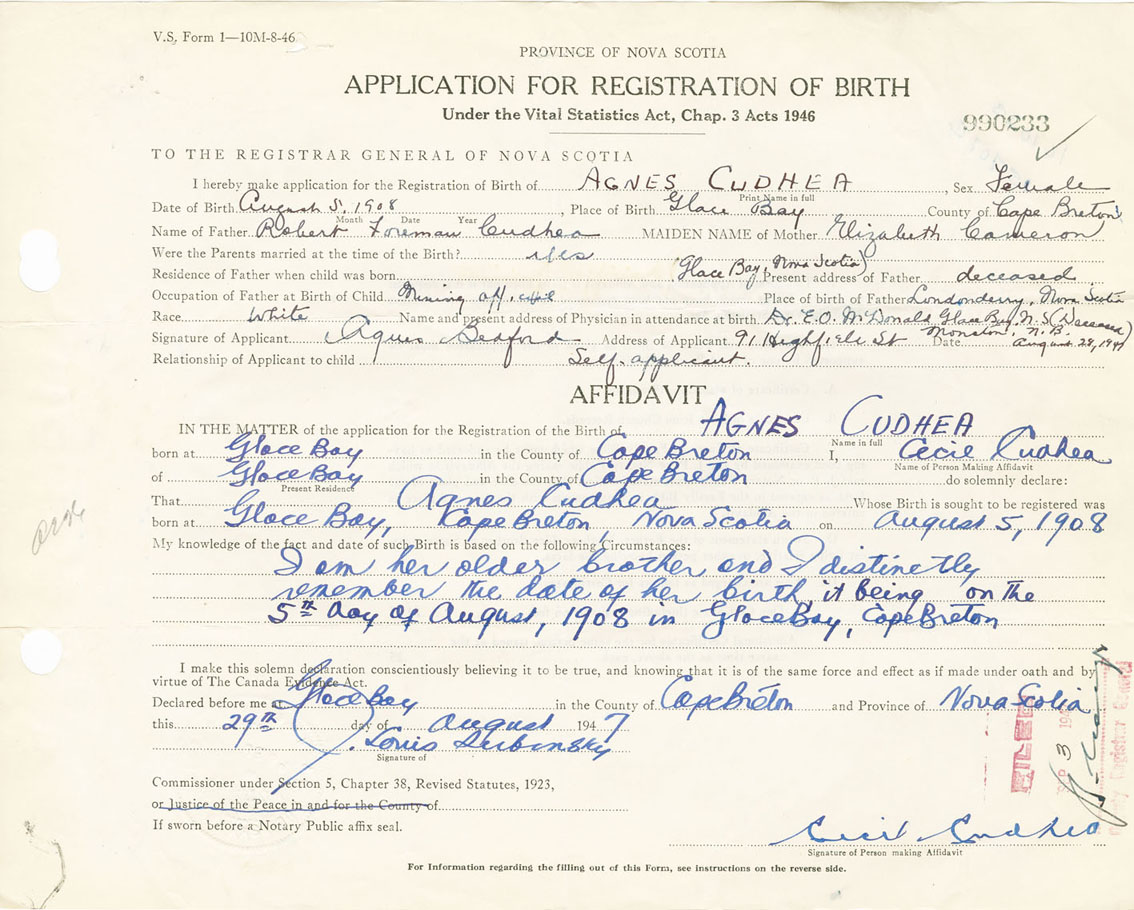 V.S. Form 1—10M-8-46
PROVINCE OF NOVA SCOTIA
APPLICATION FOR REGISTRATION OF BIRTH
Under the Vital Statistics Act, Chap. 3 Acts 1946
990233
TO THE REGISTRAR GENERAL OF NOVA SCOTIA
I hereby make application for the Registration of Birth of AGNES CUDHEA, Sex Female
Print Name in full
Date of Birth August 5, 1908, Place of Birth Glace Bay County of Cape Breton
Month Date Year
Name of Father Robert Foreman Cudhea MAIDEN NAME of Mother Elizabeth Cameron
Were the Parents married at the time of the Birth? yes
Residence of Father when child was born (Glace Bay, Nova Scotia) Present address of Father deceased
Occupation of Father at Birth of Child Mining off. Place of birth of Father Londonderry, Nova Scotia
Race White Name and present address of Physician in attendance at birth Dr. E.O. McDonald Glace Bay, N.S. (Deceased)
Signature of Applicant Agnes Address of Applicant 91 Highfield St Moncton, N.B. Date August 28, 1947
Relationship of Applicant to child Self-applicant.
AFFIDAVIT
IN THE MATTER of the application for the Registration of the Birth of AGNES CUDHEA
Name in full
born at Glace Bay in the County of Cape Breton I, Cecil Cudhea
Name of Person Making Affidavit
of Glace Bay in the County of Cape Breton do solemnly declare:
Present Residence
That Agnes Cudhea Whose Birth is sought to be registered was
born at Glace Bay, Cape Breton, Nova Scotia on August 5, 1908
My knowledge of the fact and date of such Birth is based on the following Circumstances:
I am her older brother and I distinctly
remember the date of her birth, it being on the
5th day of August, 1908 in Glace Bay, Cape Breton
I make this solemn declaration conscientiously believing it to be true, and knowing that it is of the same force and effect as if made under oath and by
virtue of The Canada Evidence Act.
Declared before me at Glace Bay in the County of Cape Breton and Province of Nova Scotia
this 29th day of August 1947
Louis Dubinsky
Signature of
Commissioner under Section 5, Chapter 38, Revised Statutes, 1923,
or Justice of the Peace in and for the County of
If sworn before a Notary Public affix seal.
FILED
Cecil Cudhea
Signature of Person making Affidavit
For Information regarding the filling out of this Form, see instructions on the reverse side.